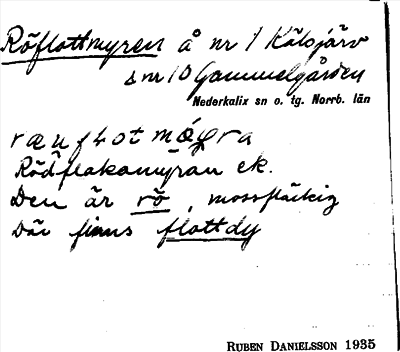 Röflottmyren å nr 1 Kälsjärv
å nr 10 Gammelgården
Nederkalix sn o. tg. Norrb. län
Rödflakamyran ek.
Den är rö, mossfläckig
Där finns flottdy
RUBEN DANIELSSON 1935